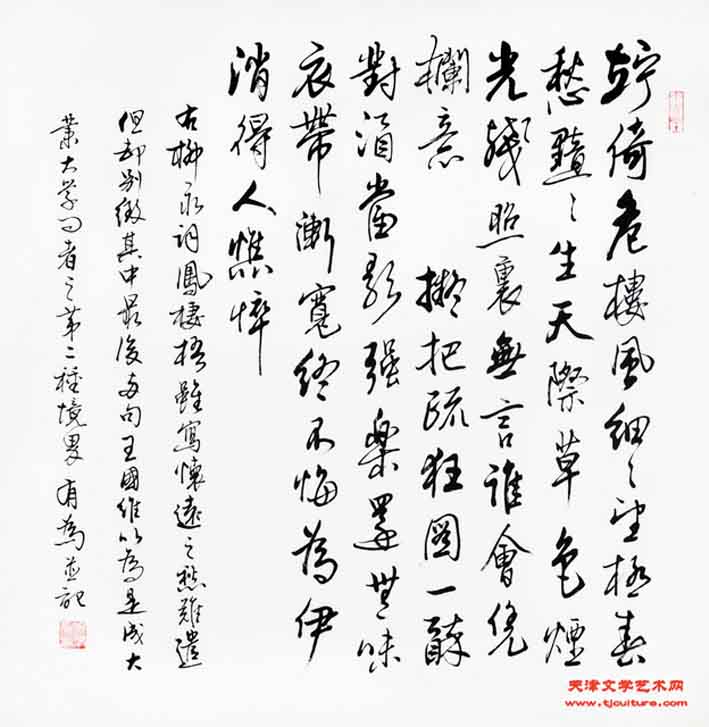 竚倚危樓風細〻望極春
愁黯〻生天際草色煙
光殘照裏無言誰會凭
欄意 擬把疏狂圖一醉
對酒當歌強樂還無味
衣帶漸寬終不悔為伊
消得人憔悴
右柳永詞鳳棲梧雖寫懷遠之愁難遣
但却别緻其中最後兩句王國維以為是成大
業大学问者之第二種境界 有為並記
天津文学艺术网
www.tjculture.com